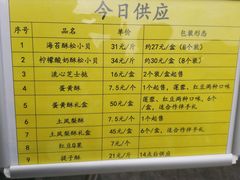 今日供应
序号 品名 单价 包装形态
1 海苔酥松小贝 31元/斤 约27元/盒（8个装）
2 柠檬酸奶酥松小贝 34元/斤 约30元/盒（8个装）
3 流心芝士挞 16元/盒 2个装/盒起售
4 蛋黄酥 7.5元/个 1个起售，莲蓉、红豆两种口味
5 蛋黄酥礼盒 50元/盒 莲蓉、红豆两种口味，6个/盒，适合作伴手礼
6 土凤梨酥 7.5元/个 1个起售
7 土凤梨酥礼盒 45元/盒 6个/盒，适合作伴手礼
8 红豆Q果 7元/个
9 提子酥 21元/斤 14点后供应